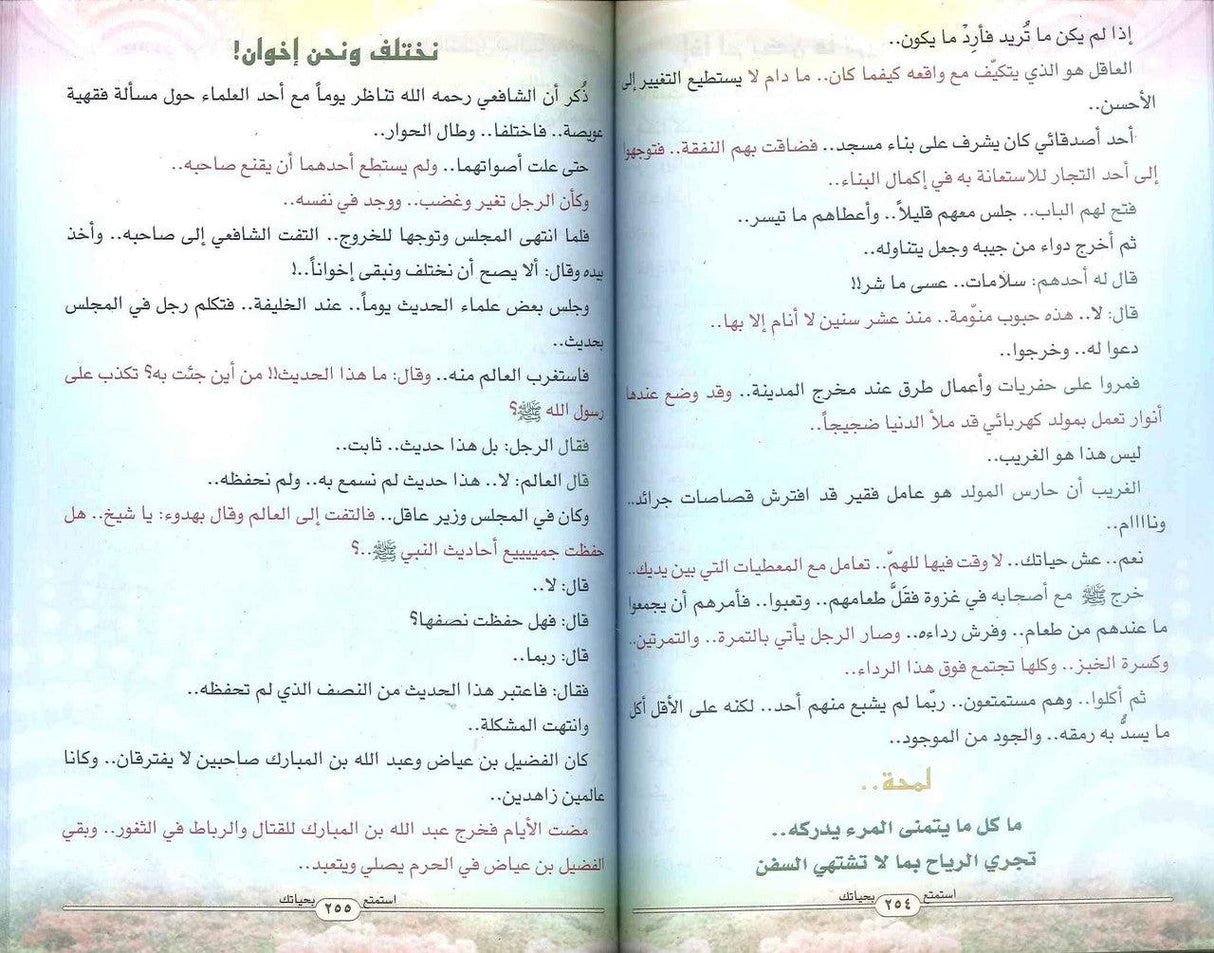 إذا لم يكن ما تُريد فأرِدْ ما يكون..
العاقل هو الذي يتكيّف مع واقعه كيفما كان.. ما دام لا يستطيع التغيير إلى
الأحسن..
أحد أصدقائي كان يشرف على بناء مسجد.. فضاقت بهم النفقة.. فتوجهوا
إلى أحد التجار للاستعانة به في إكمال البناء..
فتح لهم الباب.. جلس معهم قليلاً.. وأعطاهم ما تيسر..
ثم أخرج دواء من جيبه وجعل يتناوله..
قال له أحدهم: سلامات.. عسى ما شر!!
قال: لا.. هذه حبوب منوّمة.. منذ عشر سنين لا أنام إلا بها..
دعوا له.. وخرجوا..
فمروا على حفريات وأعمال طرق عند مخرج المدينة.. وقد وضع عندها
أنوار تعمل بمولد كهربائي قد ملأ الدنيا ضجيجاً..
ليس هذا هو الغريب..
الغريب أن حارس المولد هو عامل فقير قد افترش قصاصات جرائد..
ونااااام..
نعم.. عش حياتك.. لا وقت فيها للهمّ.. تعامل مع المعطيات التي بين يديك..
خرج ﷺ مع أصحابه في غزوة فقَلَّ طعامهم.. وتعبوا.. فأمرهم أن يجمعوا
ما عندهم من طعام.. وفرش رداءه.. وصار الرجل يأتي بالتمرة.. والتمرتين..
وكسرة الخبز.. وكلها تجتمع فوق هذا الرداء..
ثم أكلوا.. وهم مستمتعون.. ربّما لم يشبع منهم أحد.. لكنه على الأقل أكل
ما يسدُّ به رمقه.. والجود من الموجود..
لمحة..
ما كل ما يتمنى المرء يدركه..
تجري الرياح بما لا تشتهي السفن
استمتع ٢٥٤ بحياتك
نختلف ونحن إخوان!
ذُكر أن الشافعي رحمه الله تناظر يوماً مع أحد العلماء حول مسألة فقهية
عويصة.. فاختلفا.. وطال الحوار..
حتى علت أصواتهما.. ولم يستطع أحدهما أن يقنع صاحبه..
وكأن الرجل تغير وغضب.. ووجد في نفسه..
فلما انتهى المجلس وتوجها للخروج.. التفت الشافعي إلى صاحبه.. وأخذ
بيده وقال: ألا يصح أن نختلف ونبقى إخواناً..!
وجلس بعض علماء الحديث يوماً.. عند الخليفة.. فتكلم رجل في المجلس
بحديث..
فاستغرب العالم منه.. وقال: ما هذا الحديث!! من أين جئت به؟ تكذب على
رسول الله ﷺ؟
فقال الرجل: بل هذا حديث.. ثابت..
قال العالم: لا.. هذا حديث لم نسمع به.. ولم نحفظه..
وكان في المجلس وزير عاقل.. فالتفت إلى العالم وقال بهدوء: يا شيخ.. هل
حفظت جميييييع أحاديث النبي ﷺ..؟
قال: لا..
قال: فهل حفظت نصفها؟
قال: ربما..
فقال: فاعتبر هذا الحديث من النصف الذي لم تحفظه..
وانتهت المشكلة..
كان الفضيل بن عياض وعبد الله بن المبارك صاحبين لا يفترقان.. وكانا
عالمين زاهدين..
مضت الأيام فخرج عبد الله بن المبارك للقتال والرباط في الثغور.. وبقي
الفضيل بن عياض في الحرم يصلي ويتعبد..
استمتع ٢٥٥ بحياتك